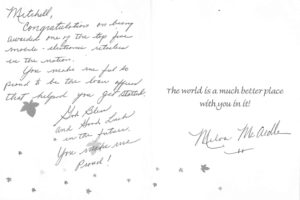 Mitchell,
Congratulations on being
awarded one of the top five
mobile-electronic retailers
in the nation.
You make me feel so
proud to be the loan officer
that helped you get started.
God Bless
and Good Luck
in the future.
You make me
Proud!
The world is a much better place
with you in it!
Melva McArdle